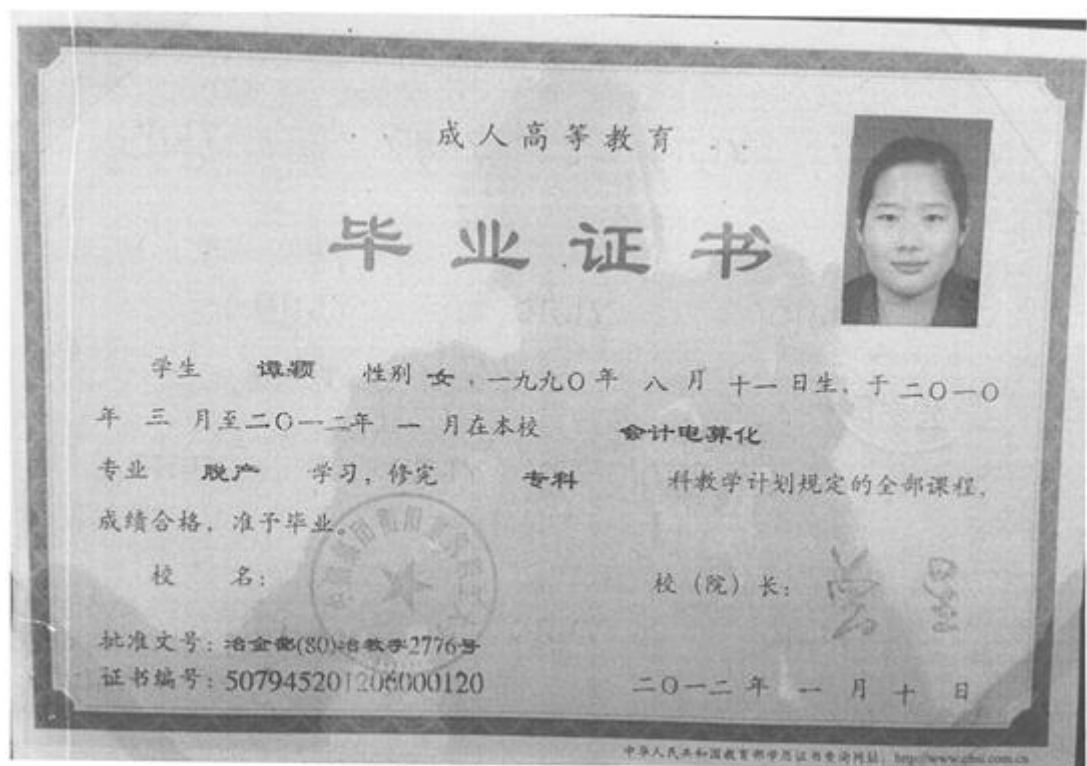 成人高等教育
毕业证书
学生 谭颖 性别 女，一九九〇年 八 月 十一 日生，于二〇一〇
年 三 月至二〇一二年 一 月在本校 会计电算化
专业 脱产 学习，修完 专科 科教学计划规定的全部课程，
成绩合格，准予毕业。
校 名：
校（院）长：
批准文号：冶金部(80)冶教字2776号
证书编号：507945201206000120
二〇一二年 一 月 十 日
中华人民共和国教育部学历证书查询网站：http://www.chsi.com.cn